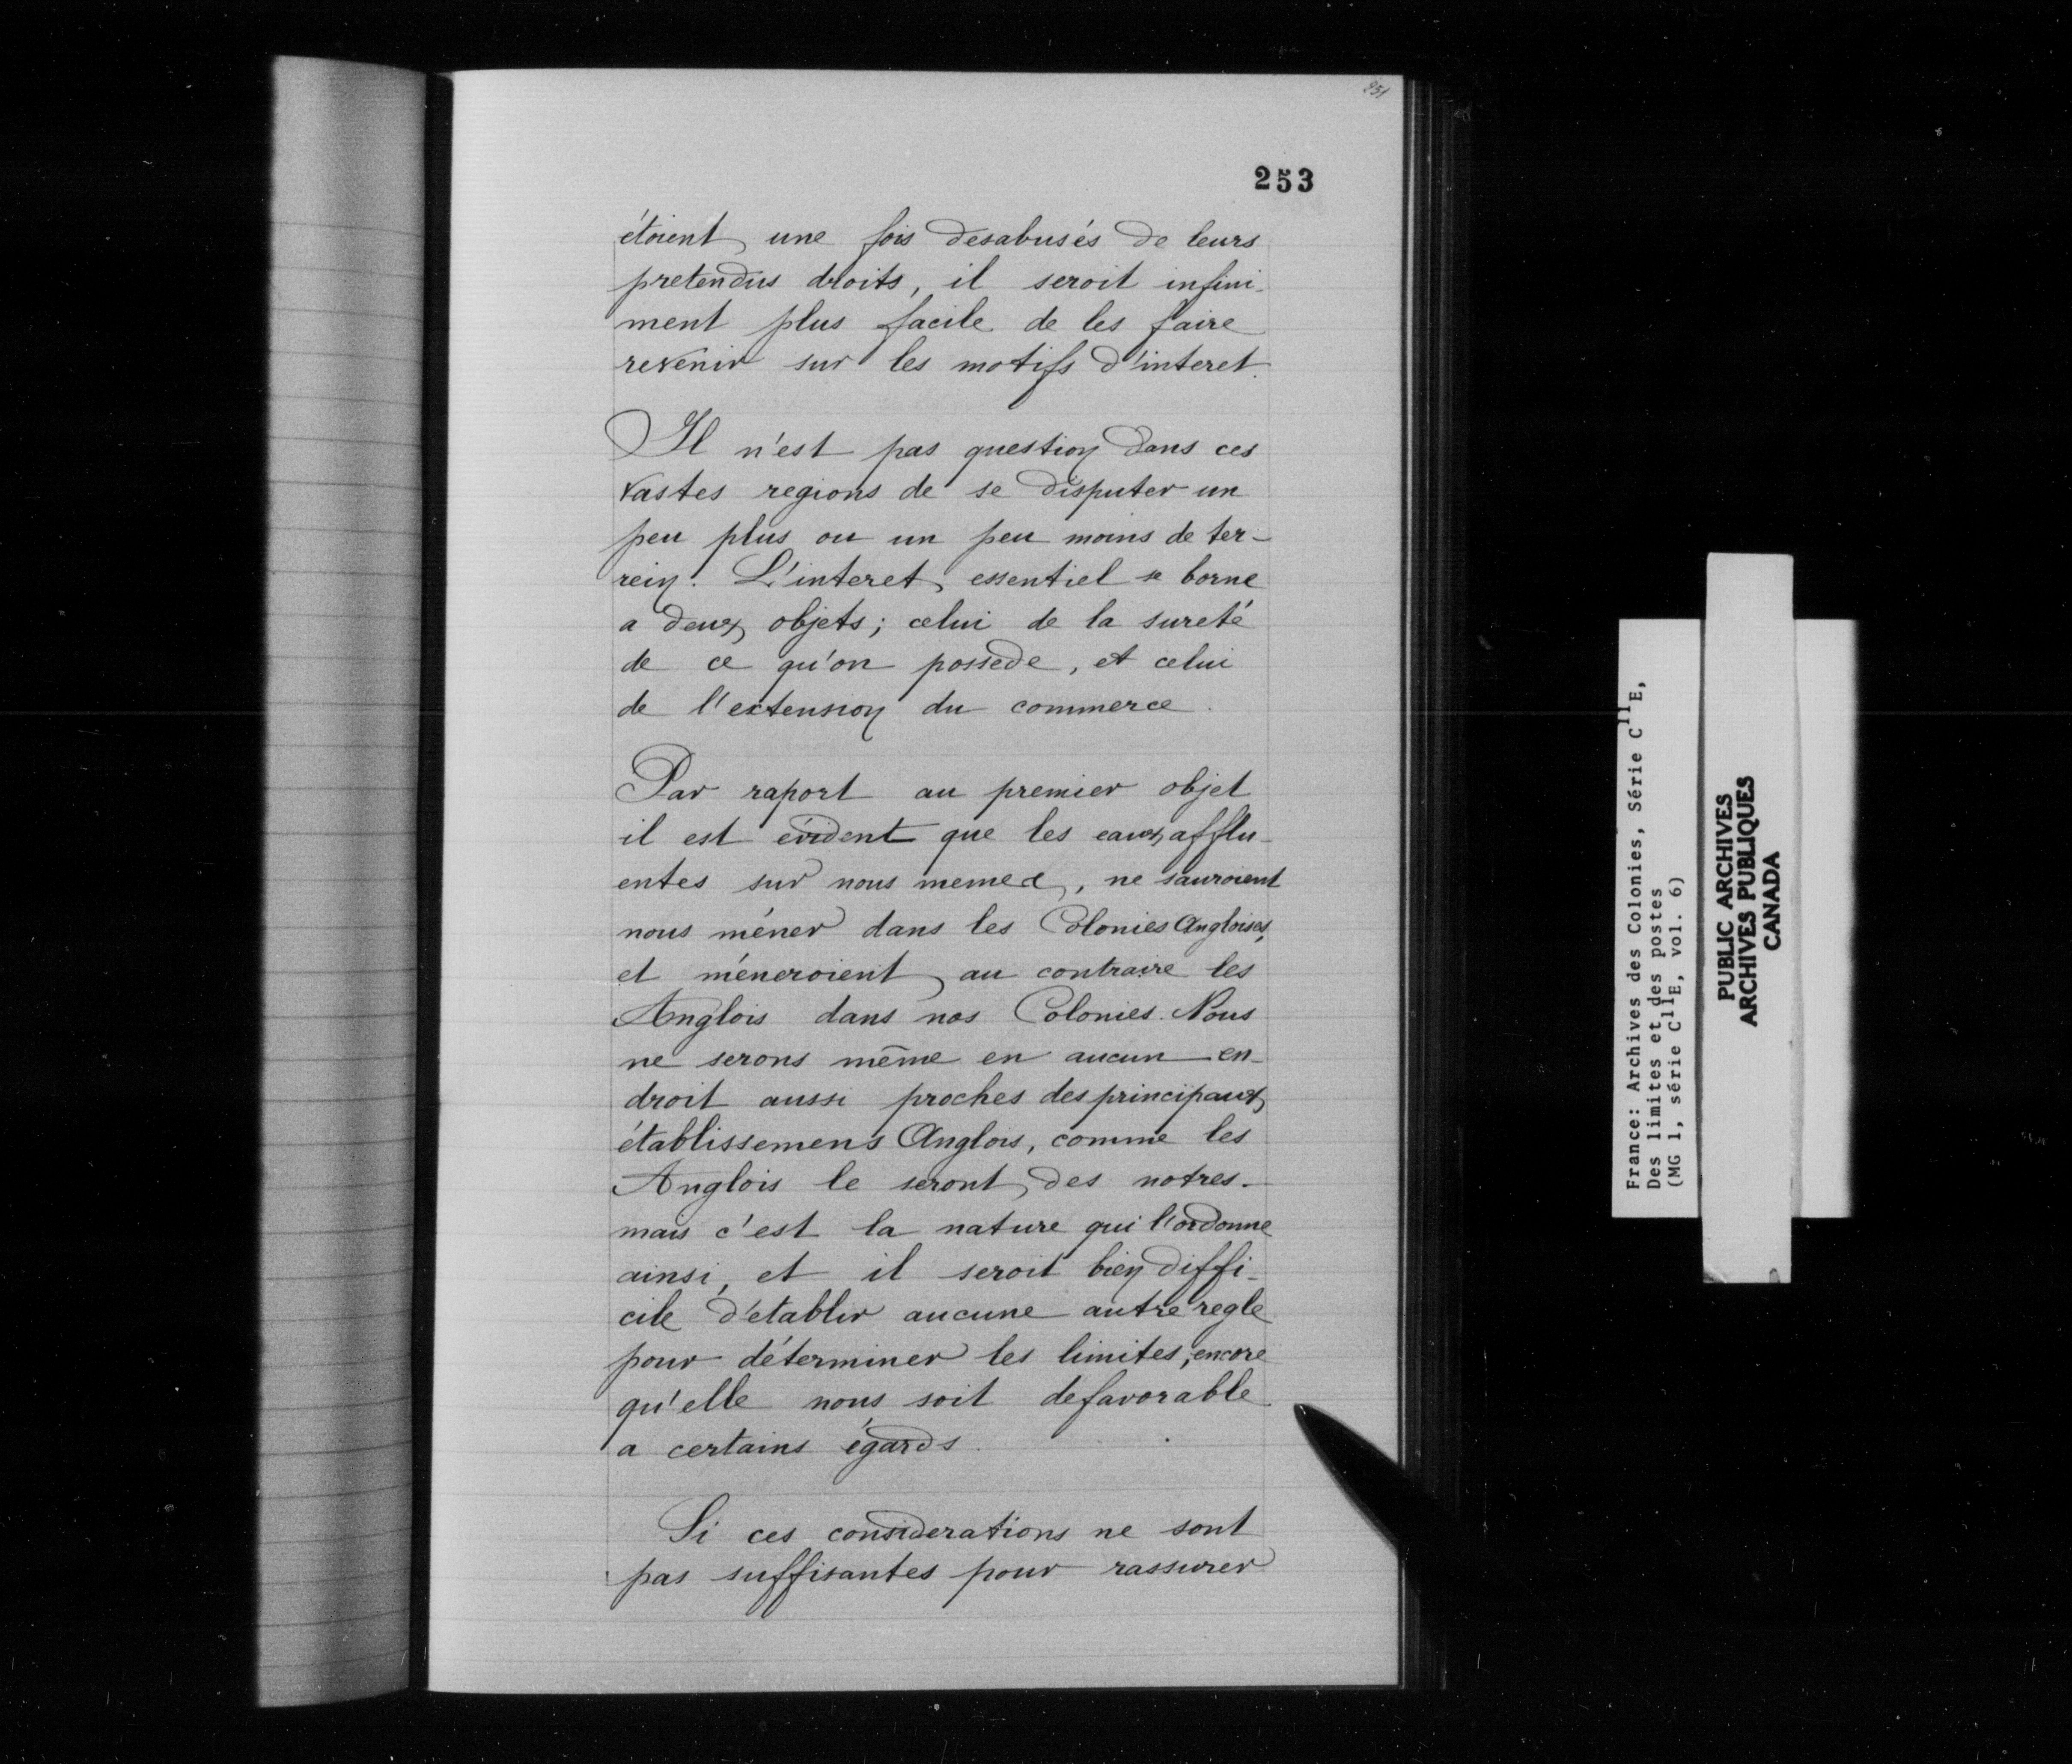 253
étoient une fois desabusés de leurs
pretendus droits, il seroit infini-
ment plus facile de les faire
revenir sur les motifs d'interet.
Il n'est pas question dans ces
vastes regions de se disputer un
peu plus ou un peu moins de ter-
rein. L'interet essentiel se borne
a deux objets; celui de la sureté
de ce qu'on possede, et celui
de l'extension du commerce.
Par raport au premier objet
il est évident que les eaux afflu-
entes sur nous memes, ne sauroient
nous méner dans les Colonies Angloises,
et méneroient au contraire les
Anglois dans nos Colonies. Nous
ne serons même en aucun en-
droit aussi proches des principaux
établissemens Anglois, comme les
Anglois le seront des notres.
mais c'est la nature qui l'ordonne
ainsi, et il seroit bien diffi-
cile d'etablir aucune autre regle
pour déterminer les limites, encore
qu'elle nous soit defavorable
a certains égards.
Si ces considerations ne sont
pas suffisantes pour rassurer
France: Archives des Colonies, Série C11E,
Des limites et des postes
(MG 1, série C11E, vol. 6)
PUBLIC ARCHIVES
ARCHIVES PUBLIQUES
CANADA